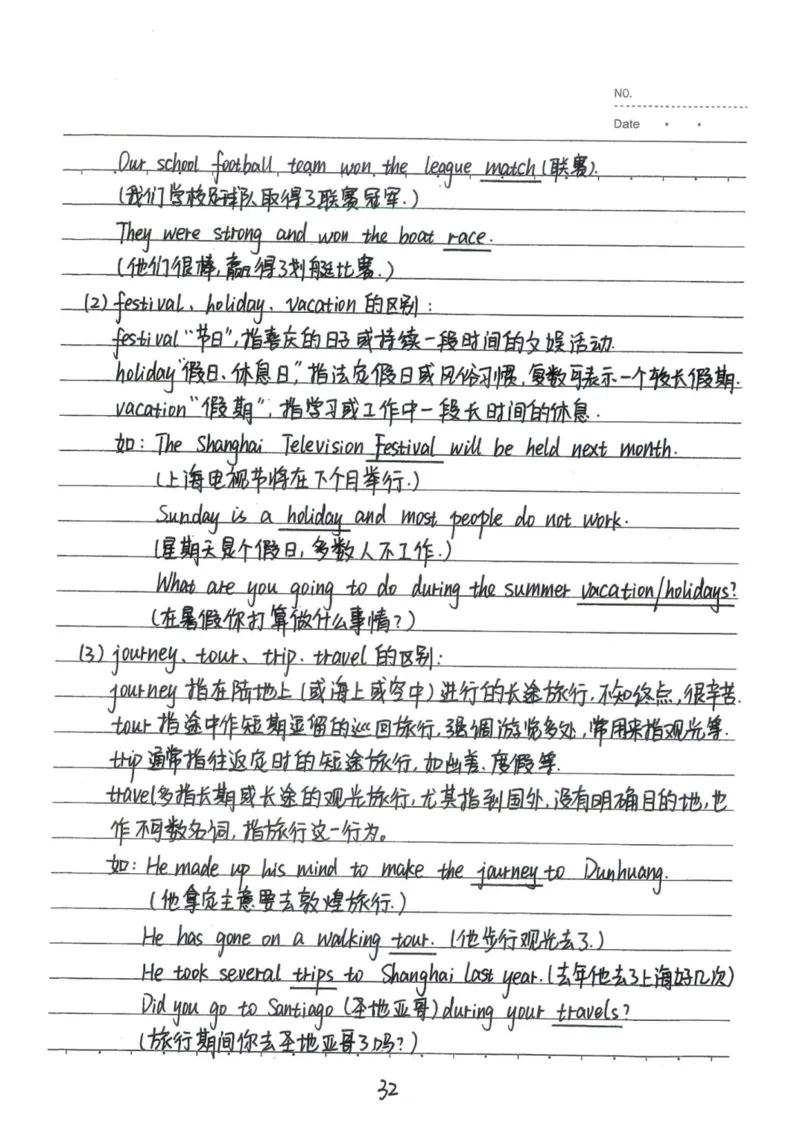 NO.
Date
Our school football team won the league match (联赛).
(我们学校足球队取得了联赛冠军.)
They were strong and won the boat race.
(他们很棒,赢得了划艇比赛.)
(2) festival、holiday、vacation 的区别:
festival“节日”,指喜庆的日子或持续一段时间的文娱活动.
holiday“假日、休息日,”指法定假日或风俗习惯,复数可表示一个较长假期.
vacation“假期”,指学习或工作中一段长时间的休息.
如: The Shanghai Television Festival will be held next month.
(上海电视节将在下个月举行.)
Sunday is a holiday and most people do not work.
(星期天是个假日,多数人不工作.)
What are you going to do during the summer vacation/holidays?
(在暑假你打算做什么事情?)
(3) journey、tour、trip、travel 的区别:
journey 指在陆地上(或海上或空中)进行的长途旅行,不知终点,很辛苦.
tour 指途中作短期逗留的巡回旅行,强调游览多处,常用来指观光等.
trip 通常指往返定时的短途旅行,如出差、度假等.
travel多指长期或长途的观光旅行,尤其指到国外,没有明确目的地,也
作不可数名词,指旅行这一行为。
如: He made up his mind to make the journey to Dunhuang.
(他拿定主意要去敦煌旅行.)
He has gone on a walking tour. (他步行观光去了.)
He took several trips to Shanghai last year.(去年他去了上海好几次)
Did you go to Santiago (圣地亚哥) during your travels?
(旅行期间你去圣地亚哥了吗?)
32